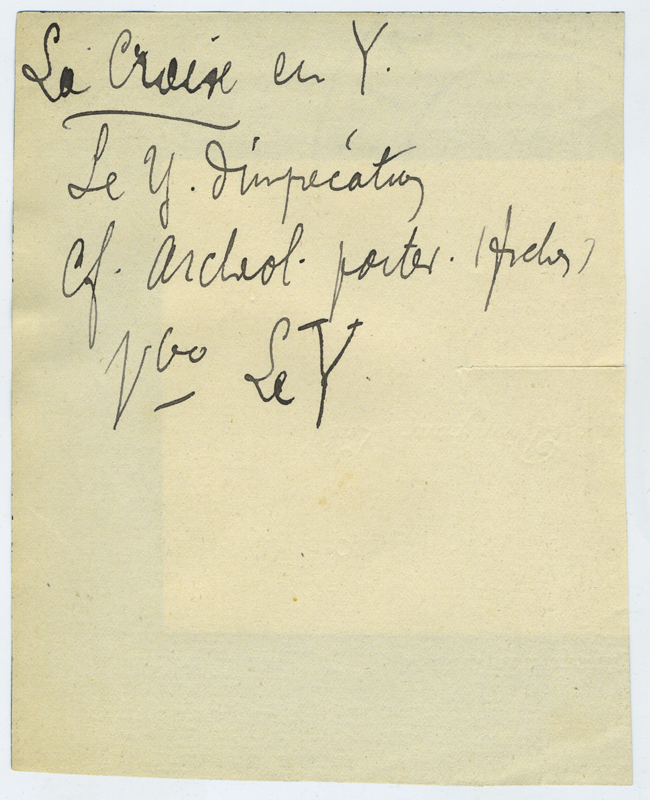 La Croix en Y.
Le Y. d'imprécation
Cf. Archeol. poiter. (fiches)
Vbo Le Y.